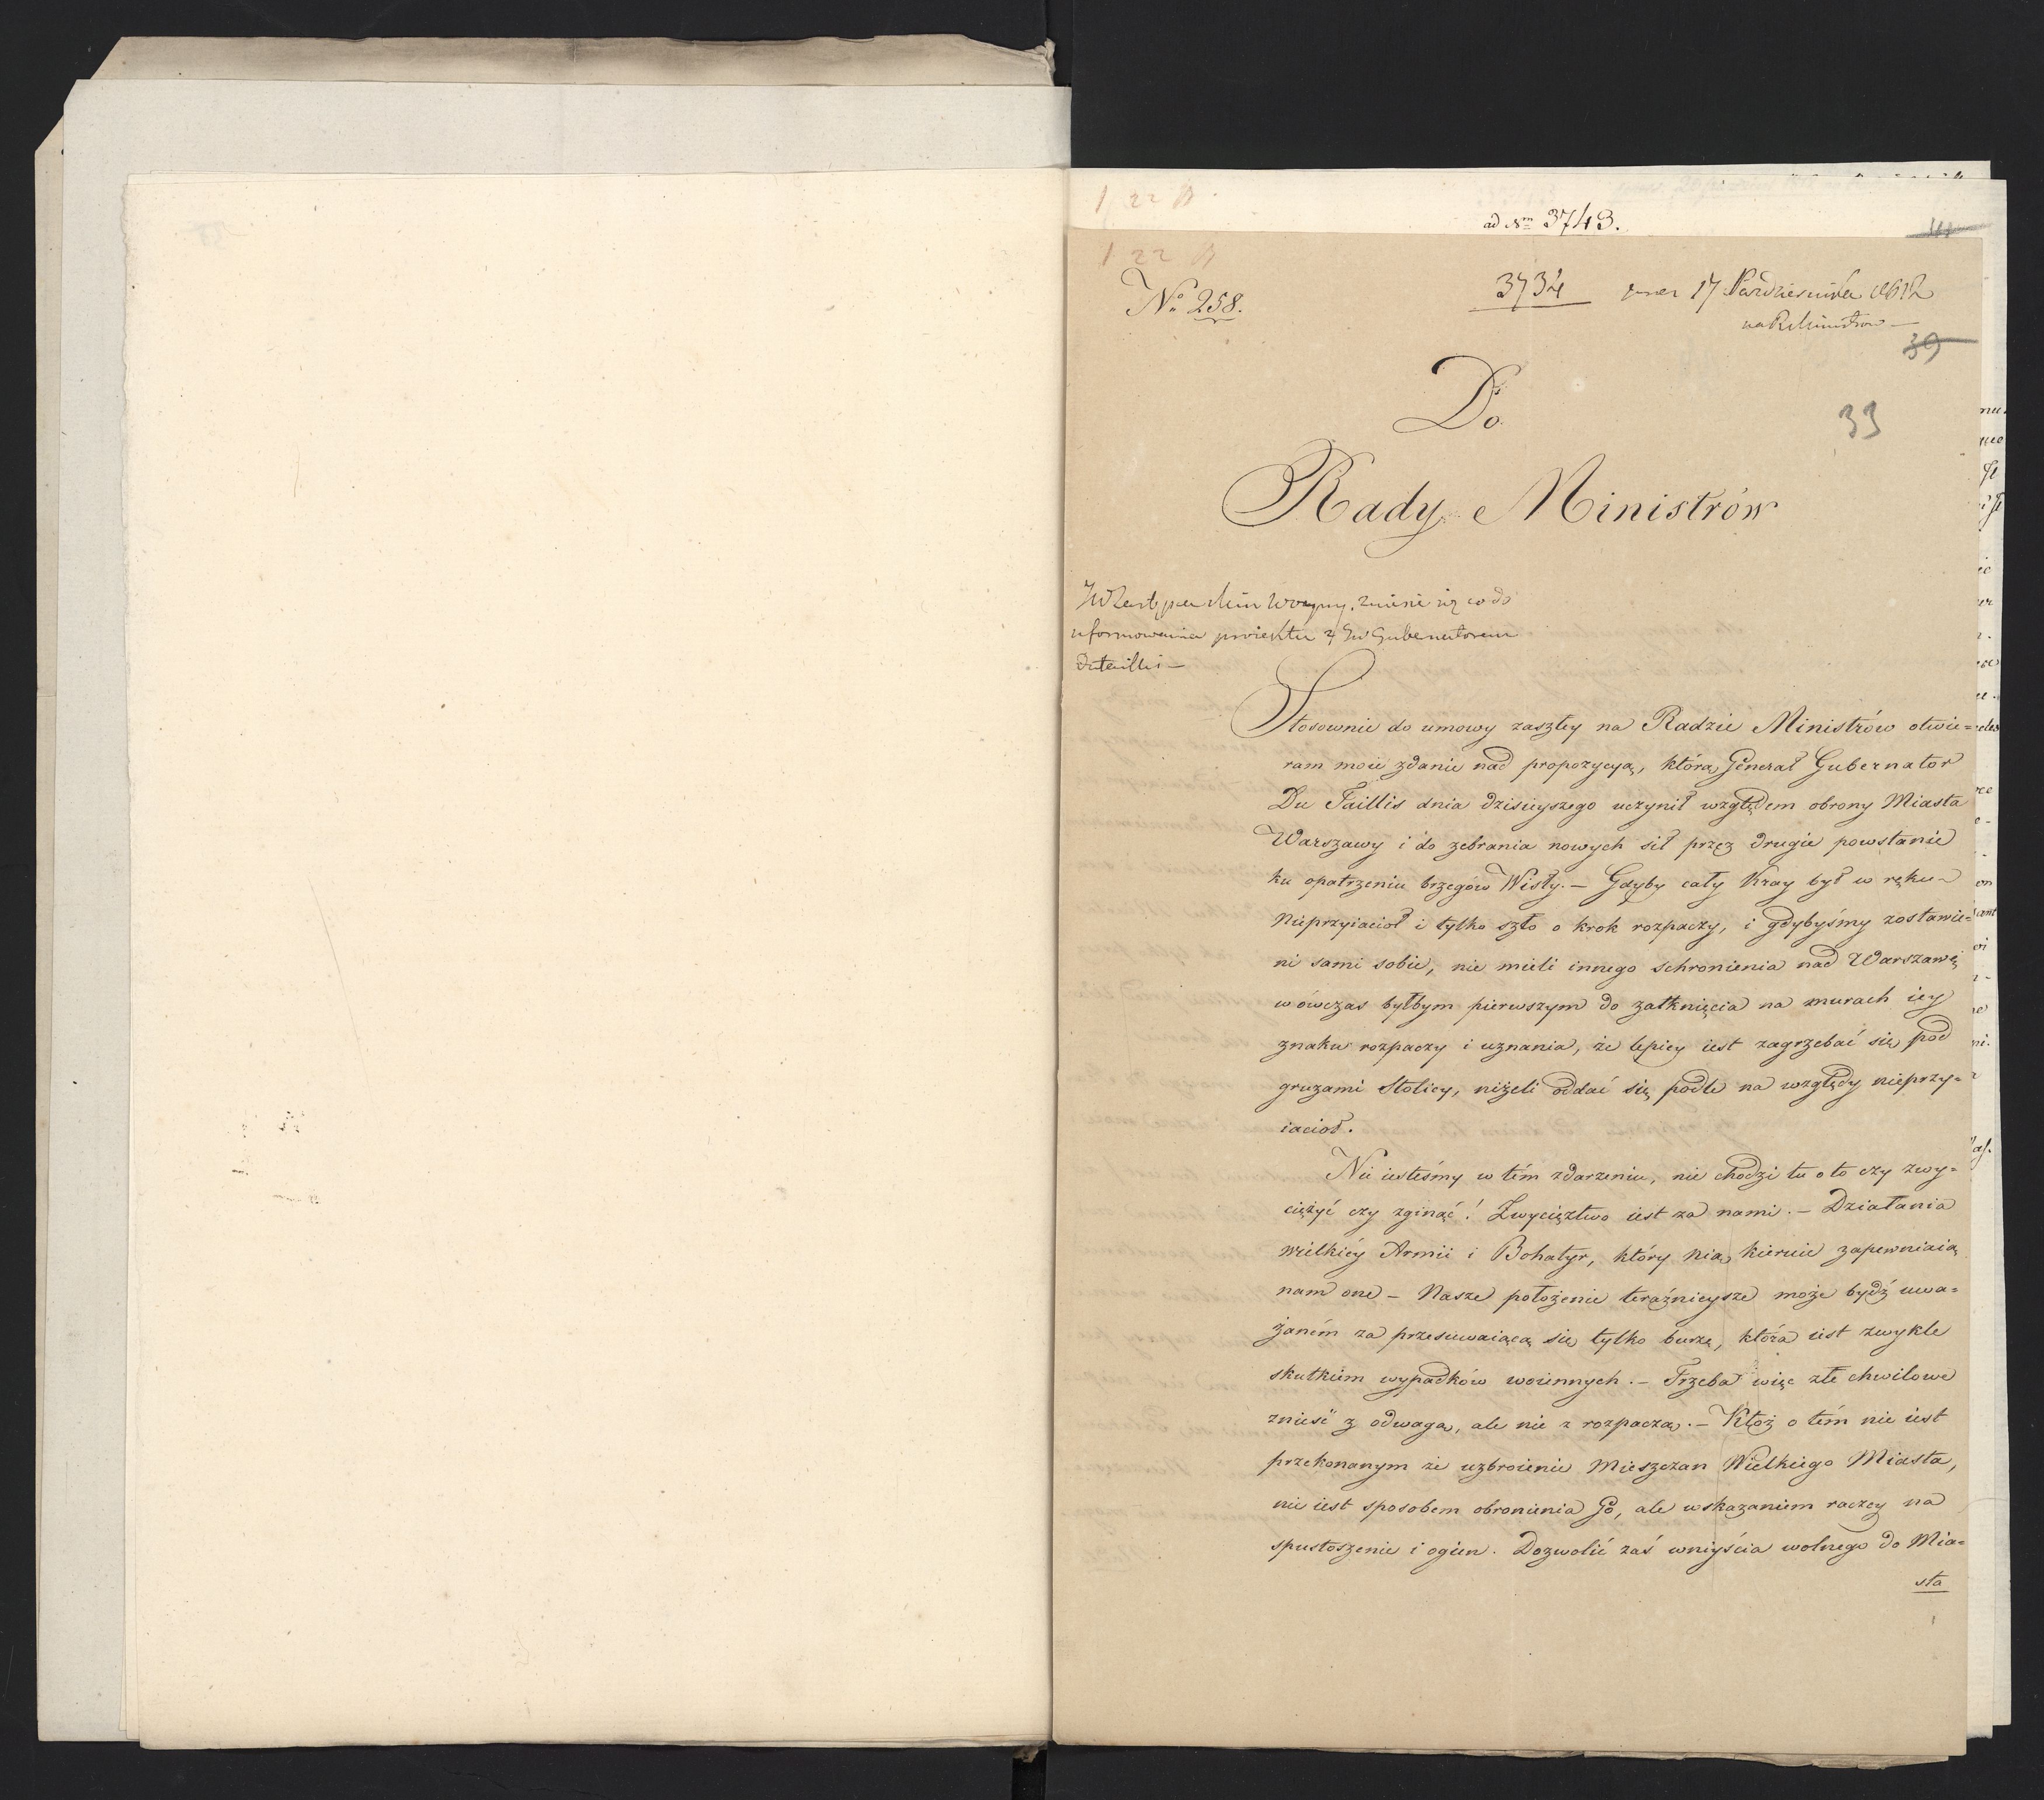 1 22 B
ad Nm 3743.
1 22 B
No 258.
3734 17 Października 1812
na R Ministrow —
39
33
Do
Rady Ministrów
uformowania proiektu z Gubernatorem
Dutaillis —
Stosownie do umowy zaszłey na Radzie Ministrów otwie=
ram moie zdanie nad propozycyą, którą Generał Gubernator
Du Taillis dnia dzisieyszego uczynił względem obrony Miasta
Warszawy i do zebrania nowych sił przez drugie powstanie
ku opatrzeniu brzegów Wisły. — Gdyby cały Kray był w ręku
Nieprzyiacioł i tylko szło o krok rozpaczy, i gdybyśmy zostawie=
ni sami sobie, nie mieli innego schronienia nad Warszawę
wówczas byłbym pierwszym do zatknięcia na murach iey
znaku rozpaczy i uznania, że lepiey iest zagrzebać się pod
gruzami Stolicy, niżeli oddać się podle na względy nieprzy=
iacioł.
Nie iesteśmy w tém zdarzeniu, nie chodzi tu o to czy zwy=
ciężyć czy zginąć! Zwycięztwo iest za nami. — Działania
wielkiéy Armii i Bohatyr, który nią kieruie zapewniaią
nam one — Nasze położenie teraźnieysze może bydź uwa=
żaném za przesuwaiącą się tylko burzę, która iest zwykle
skutkiem wypadków woiennych. — Trzeba więc złe chwilowe
znieść z odwagą, ale nie z rozpaczą. — Któż o tém nie iest
przekonanym że uzbroienie Mieszczan Wielkiego Miasta,
nie iest sposobem obronienia Go, ale wskazaniem raczey na
spustoszenie i ogień. Dozwolić zaś wniyścia wolnego do Mia=
sta